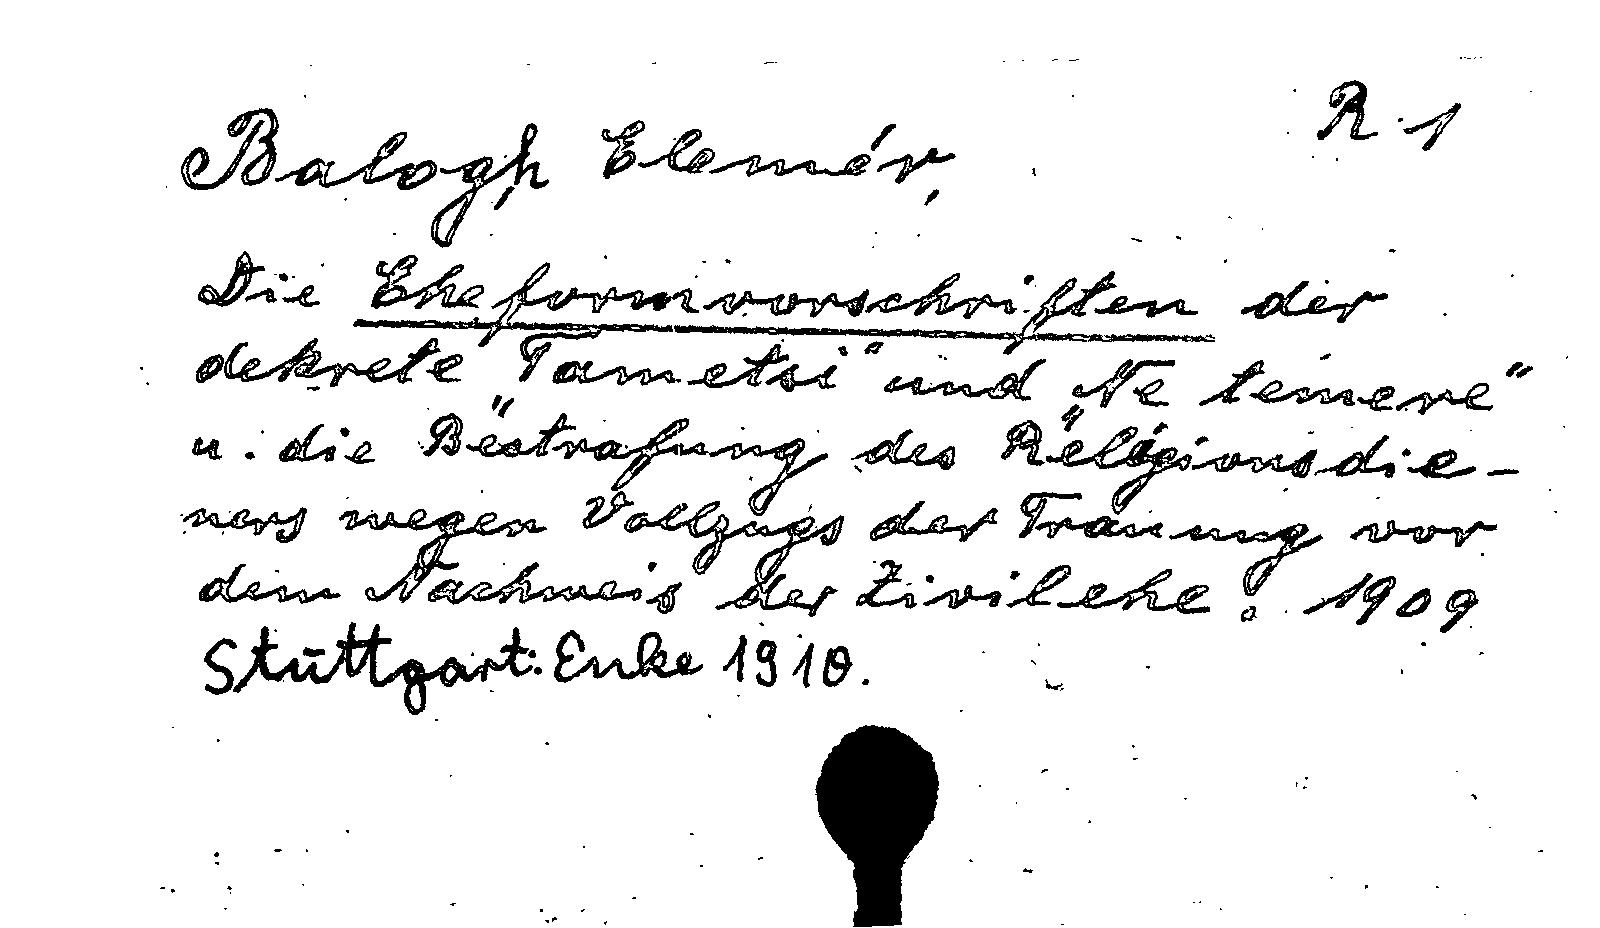 R. 1
Balogh, Elemér,
Die Eheformvorschriften der
dekrete „Tametsi“ und „Ne temere“
u. die Bestrafung des Religionsdie-
ners wegen Vollzugs der Trauung vor
dem Nachweis der Zivilehe. 1909
Stuttgart: Enke 1910.